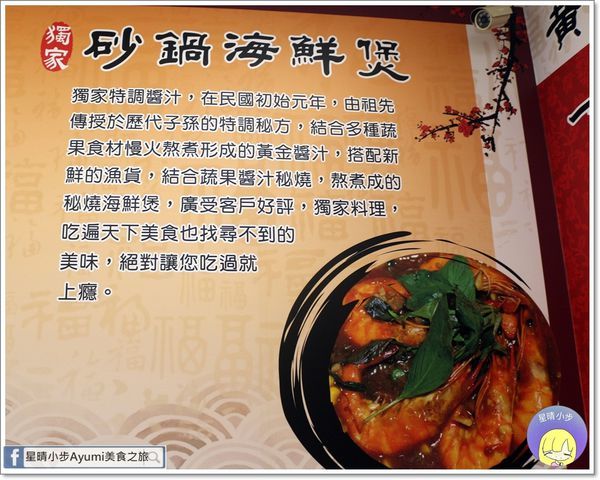 獨家
砂鍋海鮮煲
獨家特調醬汁，在民國初始元年，由祖先
傳授於歷代子孫的特調秘方，結合多種蔬
果食材慢火熬煮形成的黃金醬汁，搭配新
鮮的漁貨，結合蔬果醬汁秘燒，熬煮成的
秘燒海鮮煲，廣受客戶好評，獨家料理，
吃遍天下美食也找尋不到的
美味，絕對讓您吃過就
上癮。
黃
星晴小步
f 星晴小步Ayumi美食之旅